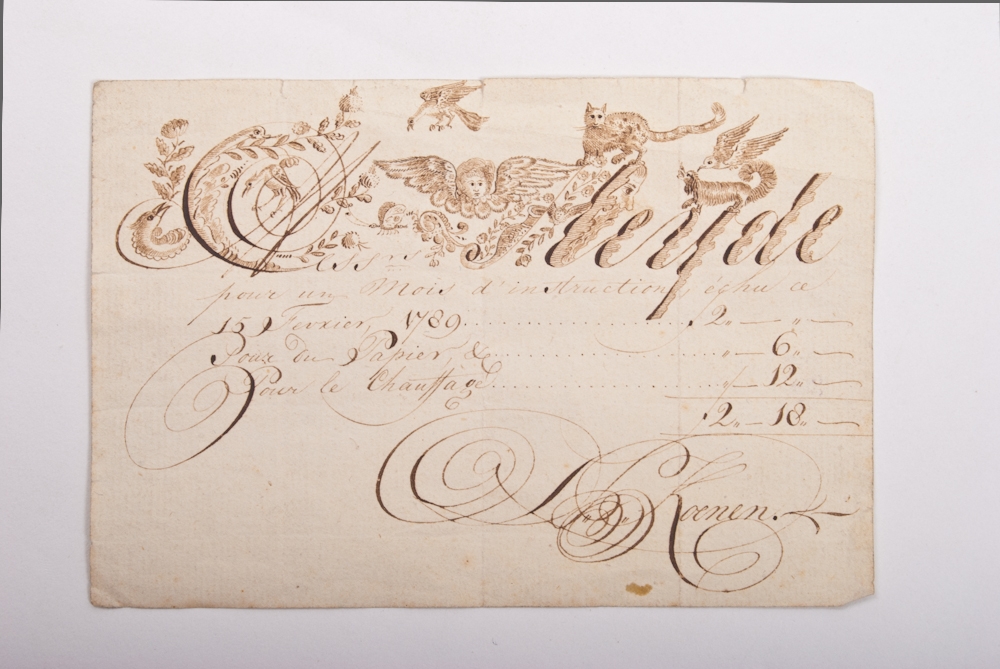 pour un Mois d'instruction, échu ce
15 Fevrier, 1789 2„ — „ —
Pour Du Papier, &c „ — 6„ —
Pour le Chauffage „ — 12„ —
2„ — 18„ —
Koenen.